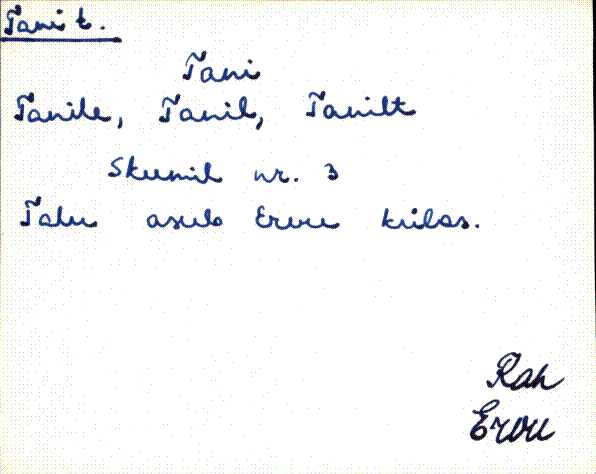 Tani t.
Tani
Tanile, Tanil, Tanilt
Skeemil nr. 3
Talu asub Ervu külas.
Rah
Ervu